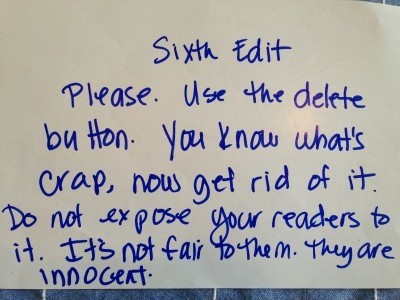 Sixth Edit
Please. Use the delete
button. You know what's
crap, now get rid of it.
Do not expose your readers to
it. It's not fair to them. They are
innocent.